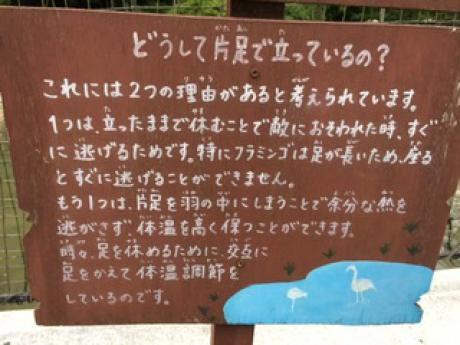 どうして片足で立っているの?
これには2つの理由があると考えられています。
1つは、立ったままで休むことで敵におそわれた時、すぐ
に逃げるためです。特にフラミンゴは足が長いため、座る
とすぐに逃げることができません。
もう1つは、片足を羽の中にしまうことで余分な熱を
逃がさず、体温を高く保つことができます。
時々、足を休めるために、交互に
足をかえて体温調節を
しているのです。